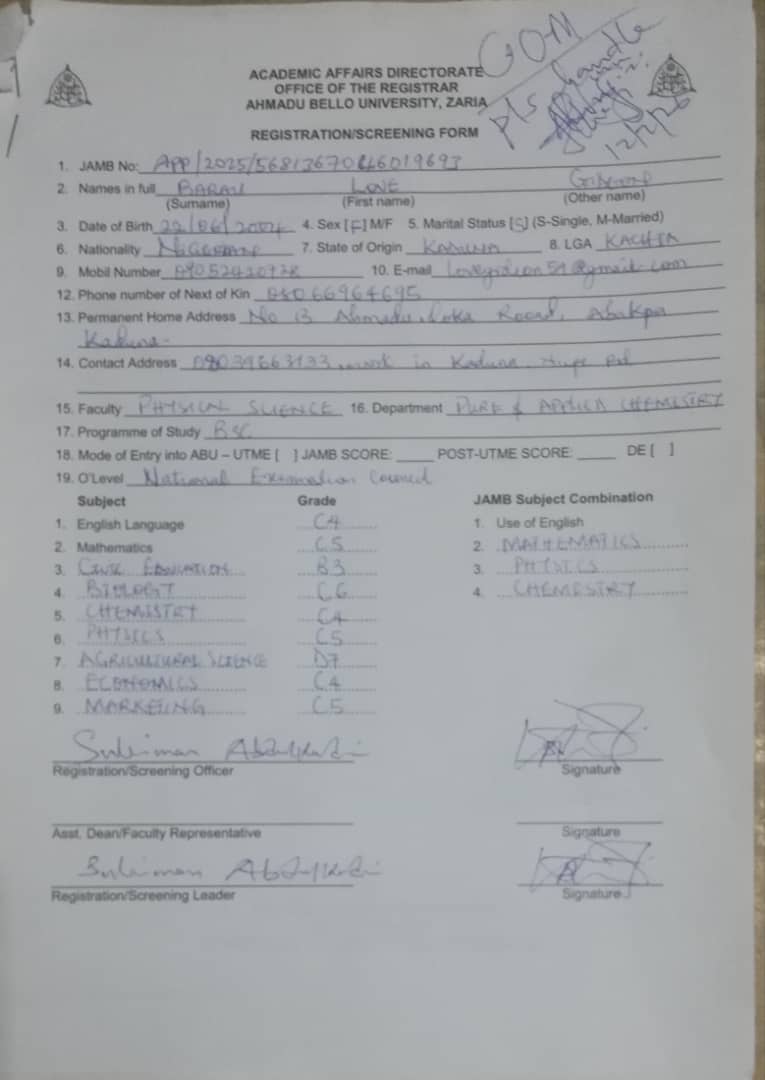 GOM
pls handle
12/2/26
ACADEMIC AFFAIRS DIRECTORATE
OFFICE OF THE REGISTRAR
AHMADU BELLO UNIVERSITY, ZARIA
REGISTRATION/SCREENING FORM
1. JAMB No:
2. Names in full BARAU LOVE
(Surname) (First name) (Other name)
3. Date of Birth 22/06/2004 4. Sex [F] M/F 5. Marital Status [S] (S-Single, M-Married)
6. Nationality 7. State of Origin KADUNA 8. LGA KACHIA
9. Mobil Number 10. E-mail lovegideon51@gmail.com
12. Phone number of Next of Kin 08066964695
13. Permanent Home Address No 13 Ahmadu Road, Abakpa
Kaduna.
14. Contact Address in Kaduna
15. Faculty PHYSICAL SCIENCE 16. Department PURE & APPLIED CHEMISTRY
17. Programme of Study BSC
18. Mode of Entry into ABU – UTME [ ] JAMB SCORE: _____ POST-UTME SCORE: _____ DE [ ]
19. O'Level National Council
Subject Grade JAMB Subject Combination
1. English Language C4 1. Use of English
2. Mathematics C5 2. MATHEMATICS
3. CIVIC EDUCATION B3 3. PHYSICS
4. BIOLOGY C6 4. CHEMISTRY
5. CHEMISTRY C4
6. PHYSICS C5
7. AGRICULTURAL SCIENCE D7
8. ECONOMICS C4
9. MARKETING C5
Suleiman
Registration/Screening Officer Signature
Asst. Dean/Faculty Representative Signature
Suleiman
Registration/Screening Leader Signature